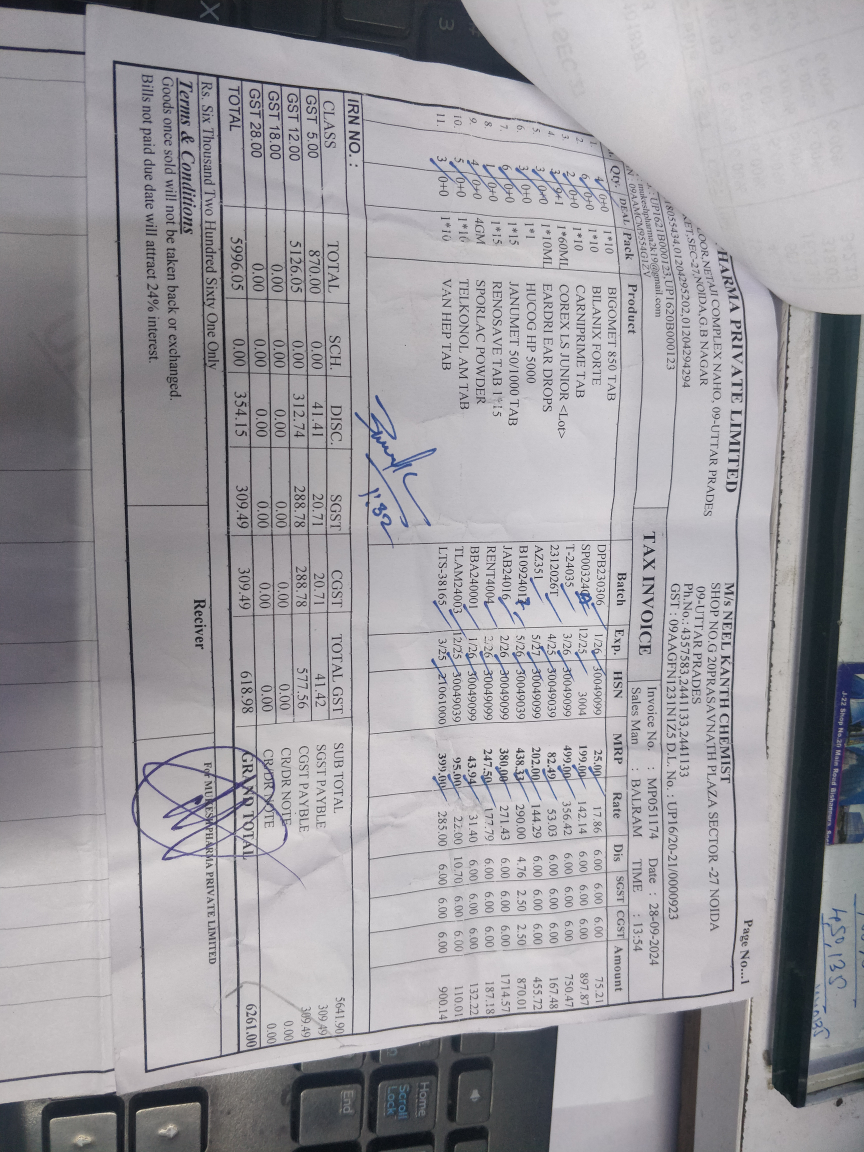 HARMA PRIVATE LIMITED
OOR,NETAJI COMPLEX NAHO, 09-UTTAR PRADES
KET,SEC-27,NOIDA,G.B NAGAR
8055434,01204295202,01204294294
UP1621B000123,UP1620B000123
mukeshpharma2k19@gmail.com
09AAMCM9554G1ZV
Page No...1
M/s NEEL KANTH CHEMIST
SHOP NO.G 20PRASAVNATH PLAZA SECTOR -27 NOIDA
09-UTTAR PRADES
Ph.No.: 4357583,2441133,2441133
GST : 09AAGFN1231N1Z5 D.L. No.: UP16/20-21/0000923
TAX INVOICE
Invoice No. : MP051174 Date : 28-09-2024
Sales Man : BALRAM TIME : 13:54
Qty. DEAL Pack Product Batch Exp. HSN MRP Rate Dis SGST CGST Amount
4 0+0 1*10 BIGOMET 850 TAB DPB230306 1/26 30049099 25.00 17.86 6.00 6.00 6.00 75.21
2. 6 0+0 1*10 BILANIX FORTE 12/25 3004 199.00 142.14 6.00 6.00 6.00 897.87
3. 2 0+0 1*10 CARNIPRIME TAB T-24035 3/26 30049099 499.00 356.42 6.00 6.00 6.00 750.47
4. 3 0+1 1*60ML COREX LS JUNIOR <Lot> 2312026T 4/25 30049039 82.49 53.03 6.00 6.00 6.00 167.48
5. 3 0+0 1*10ML EARDRI EAR DROPS AZ351 5/27 30049099 202.00 144.29 6.00 6.00 6.00 455.72
6. 3 0+0 1*1 HUCOG HP 5000 5/26 30049039 438.33 290.00 4.76 2.50 2.50 870.01
7. 6 0+0 1*15 JANUMET 50/1000 TAB JAB24016 2/26 30049099 380.00 271.43 6.00 6.00 6.00 1714.57
8. 1 0+0 1*15 RENOSAVE TAB 1*15 RENT4004 2/26 30049099 247.50 177.79 6.00 6.00 6.00 187.18
9. 4 0+0 4GM SPORLAC POWDER BBA240001 1/26 30049099 43.94 31.40 6.00 6.00 6.00 132.22
10. 5 0+0 1*10 TELKONOL AM TAB TLAM24003 12/25 30049039 95.00 22.00 10.70 6.00 6.00 110.01
11. 3 0+0 1*10 VAN HEP TAB LTS-38165 3/25 21061000 399.00 285.00 6.00 6.00 6.00 900.14
IRN NO. :
CLASS TOTAL SCH. DISC. SGST CGST TOTAL GST
GST 5.00 870.00 0.00 41.41 20.71 20.71 41.42
GST 12.00 5126.05 0.00 312.74 288.78 288.78 577.56
GST 18.00 0.00 0.00 0.00 0.00 0.00 0.00
GST 28.00 0.00 0.00 0.00 0.00 0.00 0.00
TOTAL 5996.05 0.00 354.15 309.49 309.49 618.98
SUB TOTAL 5641.90
SGST PAYBLE 309.49
CGST PAYBLE 309.49
CR/DR NOTE 0.00
CR/DR NOTE 0.00
GRAND TOTAL 6261.00
Rs. Six Thousand Two Hundred Sixty One Only
Terms & Conditions
Goods once sold will not be taken back or exchanged.
Bills not paid due date will attract 24% interest.
Reciver
For MUKESHPHARMA PRIVATE LIMITED
Home
Scroll Lock
End